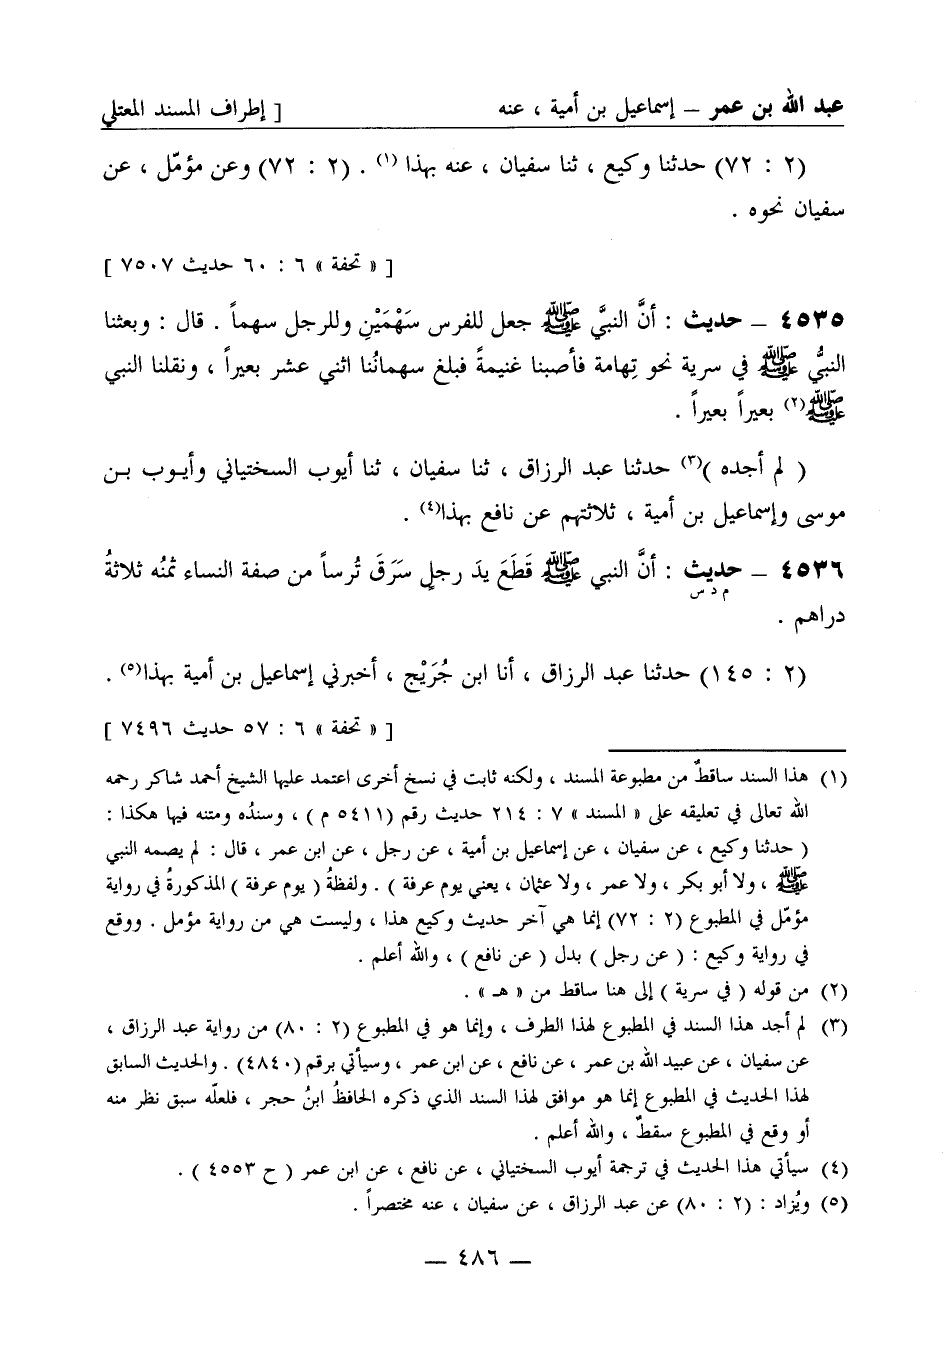 عبد الله بن عمر – إسماعيل بن أمية ، عنه [ إطراف المسند المعتلي
(٢ : ٧٢) حدثنا وكيع ، ثنا سفيان ، عنه بهذا (١) . (٢ : ٧٢) وعن مؤمّل ، عن
سفيان نحوه .
[ « تحفة » ٦ : ٦٠ حديث ٧٥٠٧ ]
٤٥٣٥ – حديث : أنَّ النبيَّ ﷺ جعل للفرس سَهْمَيْنِ وللرجل سهماً . قال : وبعثنا
النبيُّ ﷺ في سرية نحو تِهامة فأصبنا غنيمةً فبلغ سهمانُنا اثني عشر بعيراً ، ونقلنا النبي
ﷺ(٢) بعيراً بعيراً .
( لم أجده )(٣) حدثنا عبد الرزاق ، ثنا سفيان ، ثنا أيوب السختياني وأيوب بن
موسى وإسماعيل بن أمية ، ثلاثتهم عن نافع بهذا(٤) .
٤٥٣٦ – حديث : أنَّ النبي ﷺ قَطَعَ يدَ رجلٍ سَرَقَ تُرساً من صفة النساء ثمنُه ثلاثةُ
م د س
دراهم .
(٢ : ١٤٥) حدثنا عبد الرزاق ، أنا ابن جُرَيْج ، أخبرني إسماعيل بن أمية بهذا(٥) .
[ « تحفة » ٦ : ٥٧ حديث ٧٤٩٦ ]
(١) هذا السند ساقطٌ من مطبوعة المسند ، ولكنه ثابت في نسخ أخرى اعتمد عليها الشيخ أحمد شاكر رحمه
الله تعالى في تعليقه على « المسند » ٧ : ٢١٤ حديث رقم (٥٤١١ م ) ، وسندُه ومتنه فيها هكذا :
( حدثنا وكيع ، عن سفيان ، عن إسماعيل بن أمية ، عن رجل ، عن ابن عمر ، قال : لم يصمه النبي
ﷺ ، ولا أبو بكر ، ولا عمر ، ولا عثمان ، يعني يوم عرفة ) . ولفظةُ ( يوم عرفة ) المذكورةُ في رواية
مؤمّل في المطبوع (٢ : ٧٢) إنما هي آخر حديث وكيع هذا ، وليست هي من رواية مؤمل . ووقع
في رواية وكيع : ( عن رجل ) بدل ( عن نافع ) ، والله أعلم .
(٢) من قوله ( في سرية ) إلى هنا ساقط من « هـ » .
(٣) لم أجد هذا السند في المطبوع لهذا الطرف ، وإنما هو في المطبوع (٢ : ٨٠) من رواية عبد الرزاق ،
عن سفيان ، عن عبيد الله بن عمر ، عن نافع ، عن ابن عمر ، وسيأتي برقم (٤٨٤٠) . والحديث السابق
لهذا الحديث في المطبوع إنما هو موافق لهذا السند الذي ذكره الحافظُ ابنُ حجر ، فلعلّه سبق نظر منه
أو وقع في المطبوع سقطٌ ، والله أعلم .
(٤) سيأتي هذا الحديث في ترجمة أيوب السختياني ، عن نافع ، عن ابن عمر ( ح ٤٥٥٣ ) .
(٥) ويُزاد : (٢ : ٨٠) عن عبد الرزاق ، عن سفيان ، عنه مختصراً .
— ٤٨٦ —